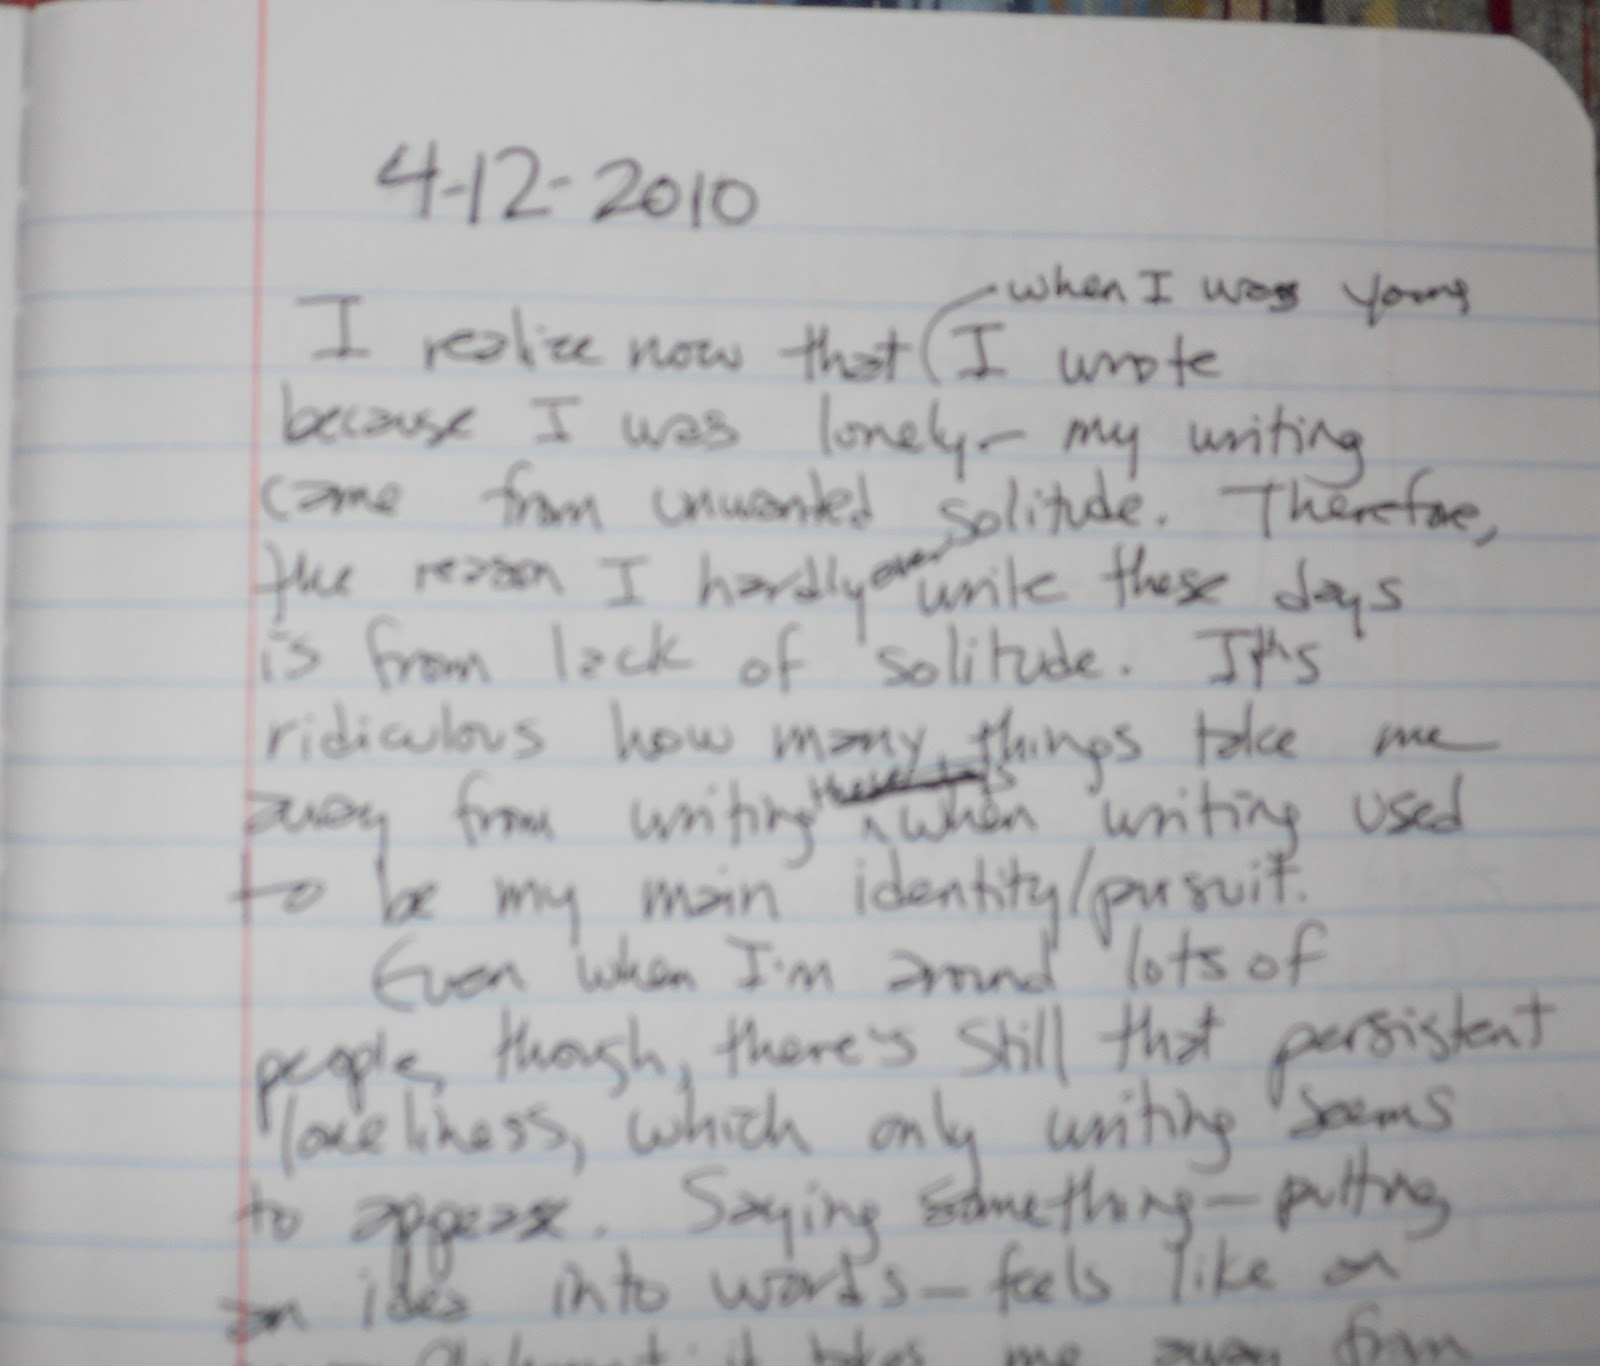 4-12-2010
when I was young
I realize now that (I wrote
because I was lonely — my writing
came from unwanted solitude. Therefore,
the reason I hardly ever write these days
is from lack of solitude. It's
ridiculous how many things take me
away from writing when writing used
to be my main identity/pursuit.
Even when I'm around lots of
people, though, there's still that persistent
loneliness, which only writing seems
to appease. Saying something — putting
an idea into words — feels like an
it takes me away from